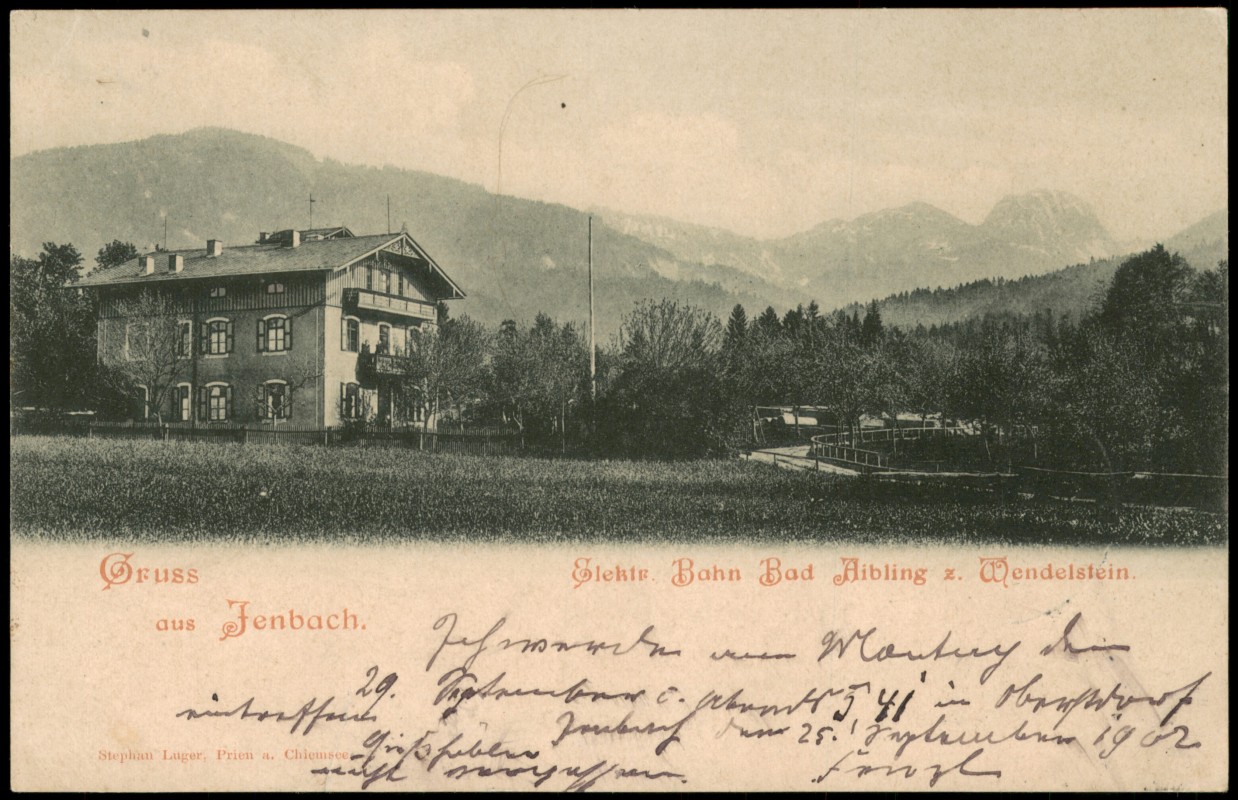 Gruss
aus Jenbach.
Elektr. Bahn Bad Aibling z. Wendelstein.
Ich werde am Montag den
29. September c. abends 5 41 in Oberstdorf
eintreffen
Jenbach den 25. September 1902
nicht vergessen.
Stephan Luger, Prien a. Chiemsee